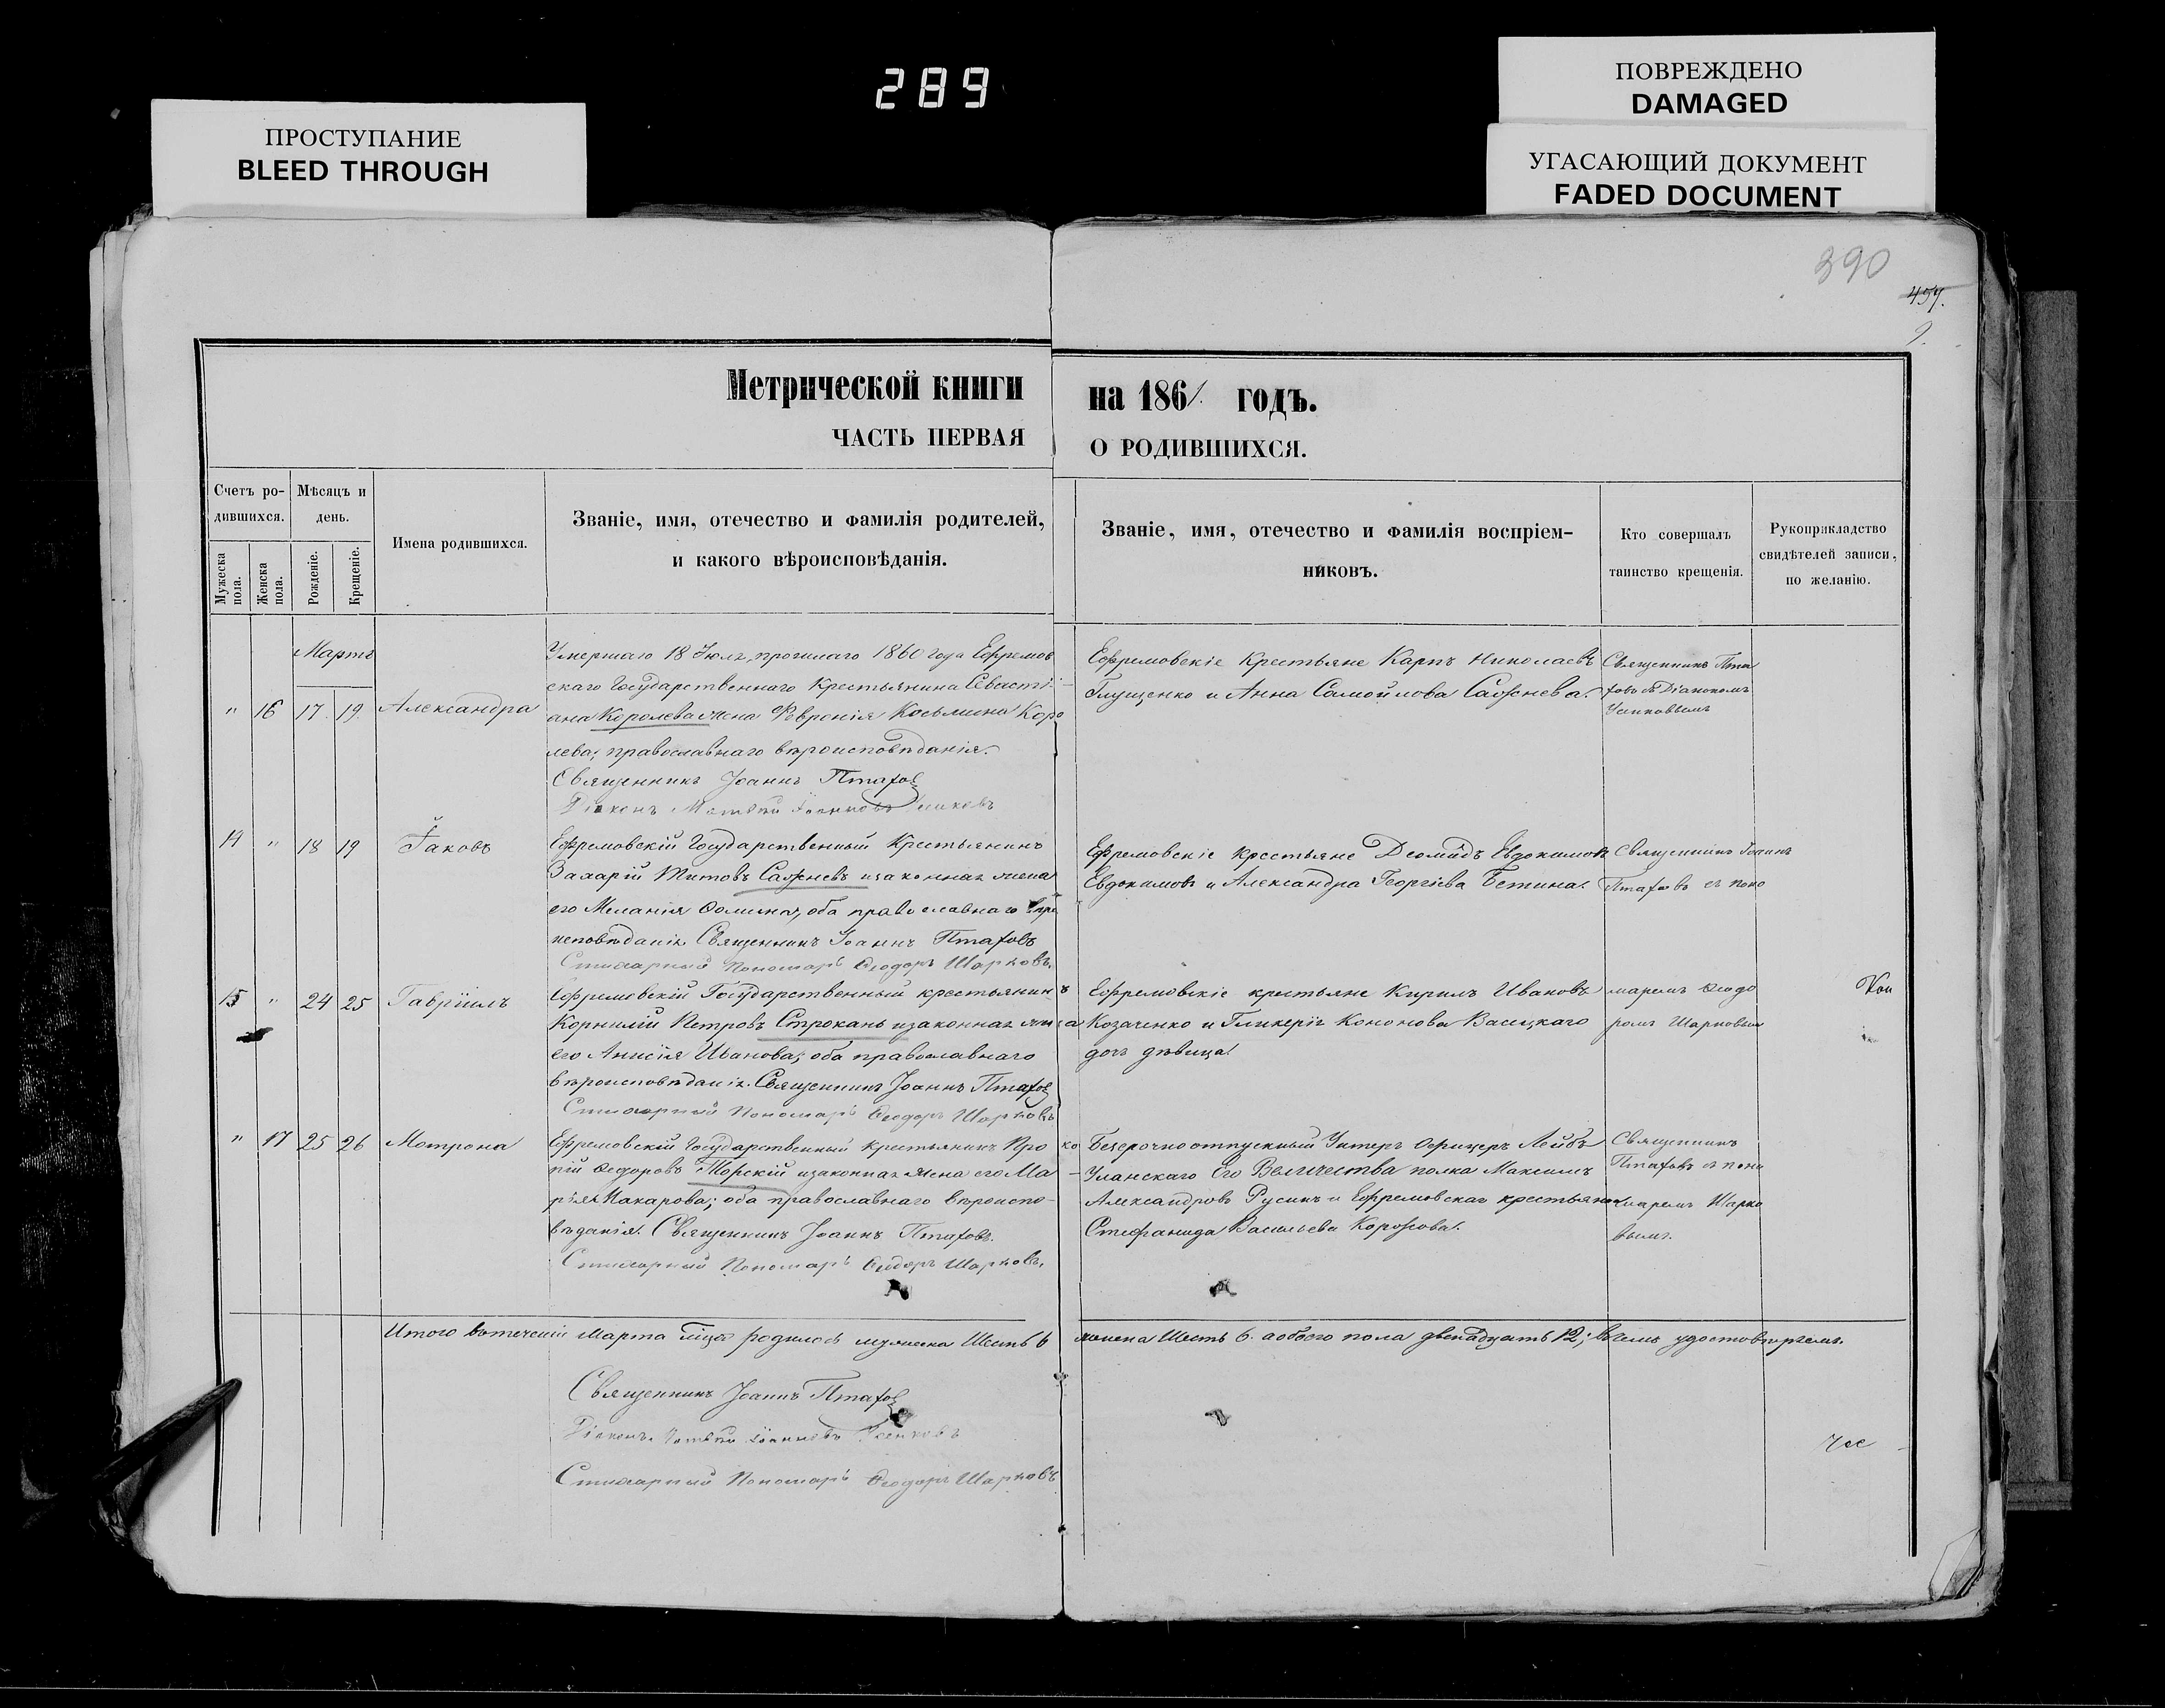 289
ПРОСТУПАНИЕ
BLEED THROUGH
ПОВРЕЖДЕНО
DAMAGED
УГАСАЮЩИЙ ДОКУМЕНТ
FADED DOCUMENT
390
457.
9.
Метрической книги на 1861 годъ.
ЧАСТЬ ПЕРВАЯ О РОДИВШИХСЯ.
Счетъ ро-
дившихся.
Мужеска пола.
Женска пола.
Мѣсяцъ и
день.
Рожденіе.
Крещеніе.
Имена родившихся.
Званіе, имя, отечество и фамилія родителей,
и какого вѣроисповѣданія.
Званіе, имя, отечество и фамилія воспріем-
никовъ.
Кто совершалъ
таинство крещенія.
Рукоприкладство
свидѣтелей записи,
по желанію.
Мартъ
" 16 17 19 Александра
Умершаго 18 Іюля, прошлаго 1860 года Ефремов
скаго Государственнаго Крестьянина Севасті-
ана Королева жена Февронія Косьмина Коро
лева, православнаго вѣроисповѣданія.
Священникъ Іоаннъ Птаховъ
Діаконъ Матвѣй Іоанновъ
Ефремовскіе Крестьяне Карпъ Николаевъ
Глущенко и Анна Самойлова Сажнева.
Священникъ Пта
ховъ съ Діакономъ
14 " 18 19 Іаковъ
Ефремовскій Государственный Крестьянинъ
Захарій Титовъ Сажневъ и законная жена
его Меланія Фомина, оба православнаго вѣро
исповѣданія. Священникъ Іоаннъ Птаховъ
Стихарный Пономарь Ѳеодоръ Шарковъ.
Ефремовскіе крестьяне Діомидъ Евдокимовъ
Евдокимовъ и Александра Георгіева Бетина.
Священникъ Іоаннъ
Птаховъ съ поно
15 " 24 25 Гавріилъ
Ефремовскій Государственный крестьянинъ
Корнилій Петровъ Строкань и законная жена
его Анисія Иванова; оба православнаго
вѣроисповѣданія. Священникъ Іоаннъ Птаховъ
Стихарный Пономарь Ѳеодоръ Шарковъ
Ефремовскіе крестьяне Кирилъ Ивановъ
Козаченко и Гликерія Кононова Васецкаго
дочь дѣвица.
маремъ Ѳеодо
ромъ Шарковым
" 17 25 26 Мотрона
Ефремовскій Государственный крестьянинъ Проко
пій Ѳедоровъ Торскій и законная жена его Ма-
рія Макарова; оба православнаго вѣроиспо-
вѣданія. Священникъ Іоаннъ Птаховъ.
Стихарный Пономарь Ѳеодоръ Шарковъ.
Безсрочноотпускный Унтеръ Офицеръ Лейбъ
Уланскаго Его Величества полка Максимъ
Александровъ Русинъ и Ефремовская крестьянка
Стефанида Васильева Корохова.
Священникъ
Птаховъ съ поно
маремъ Шарко
вымъ.
Итого въ теченіи Марта мѣсяца родилось мужеска Шесть 6 женска Шесть 6. а обоего пола двенадцать 12; въ чемъ удостовѣряемъ.
Священникъ Іоаннъ Птаховъ
Діаконъ Матвѣй Іоанновъ
Стихарный Пономарь Ѳеодоръ Шарковъ